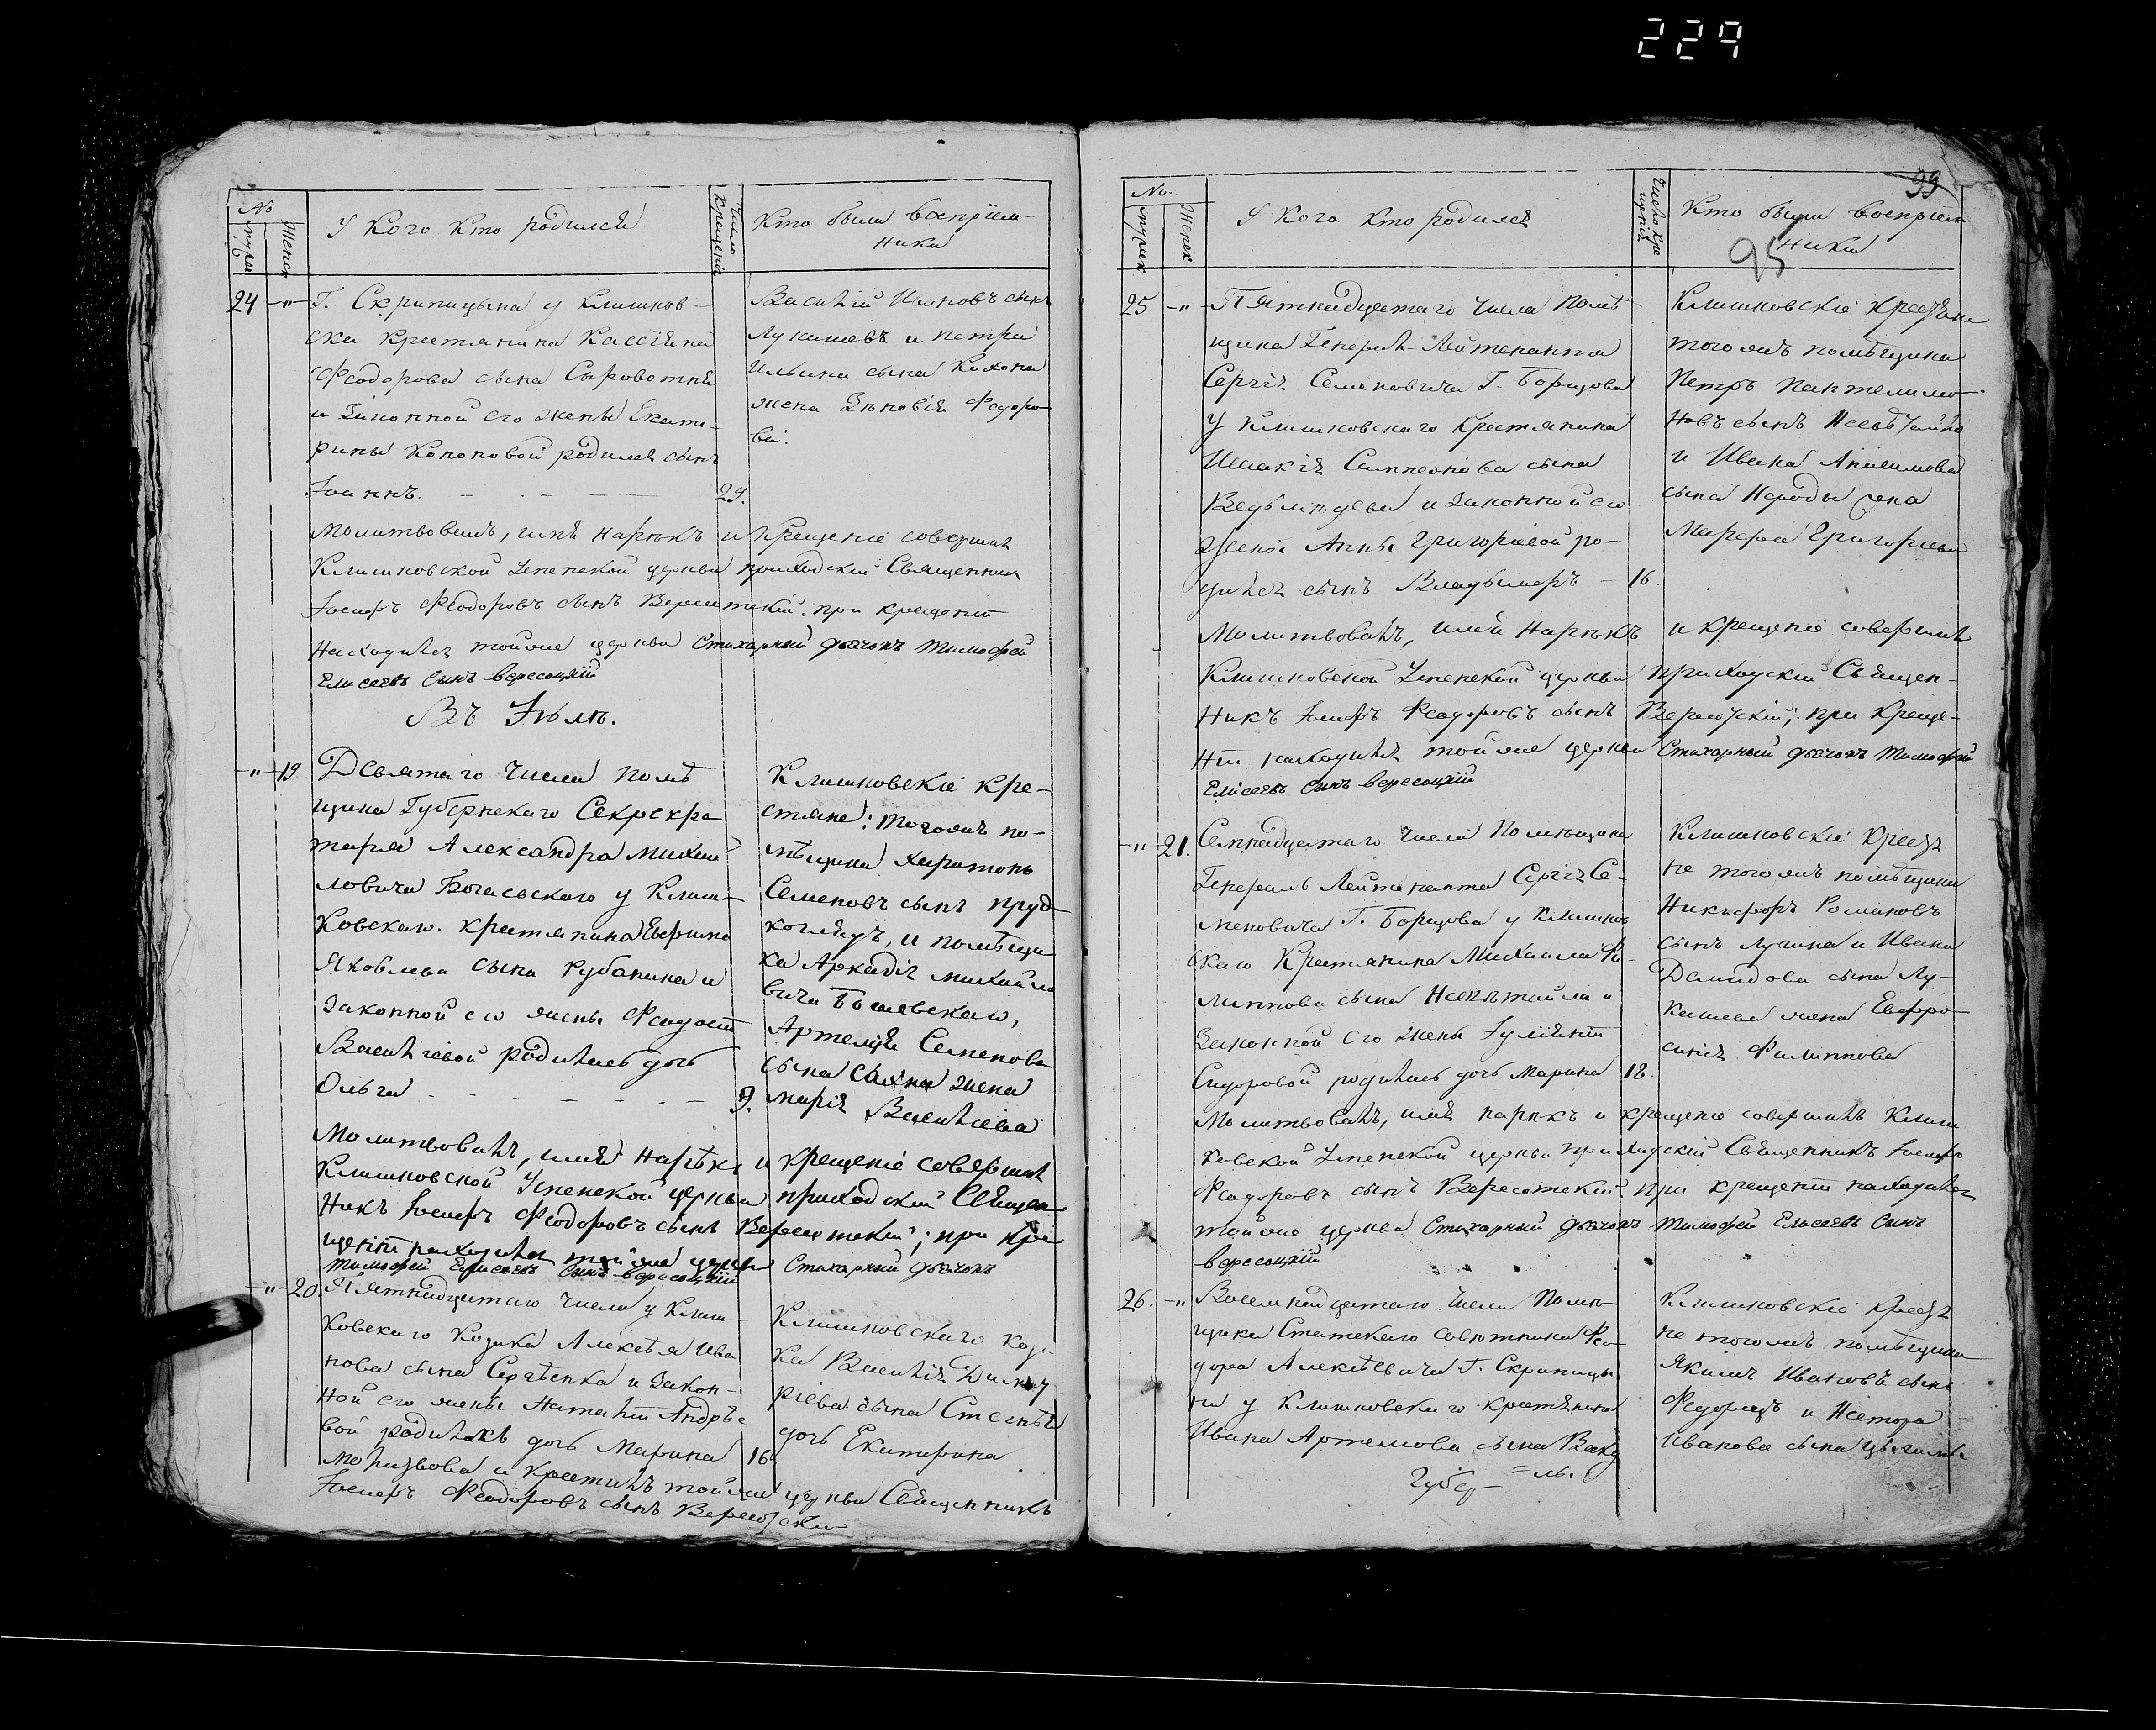 229
No
мужск
Женск
У Кого Кто родился
Число Крещенія
Кто были восприем-
ники
24 -"- Г. Скрипицына у Клишков-
ска крестянина Кассіяна
Феодорова сына Сыровотки
и Законной его жены Екате-
рины Кононовой родился сынъ
Іоаннъ. 29.
Василій Ивановъ сынъ
Лукашевъ и петра
Ильина сына
жена Зѣновія Федоро
ва.
Молитвовалъ, имя нарѣкъ и крещеніе совершилъ
Клишковской Успенской церкви приходскій Священникъ
Іосифъ Феодоровъ сынъ Вересотскій. при крещеніи
находился тойже церкви Стихарный дьячокъ тимофей
Елисеевъ сынъ вересоцкій
Въ Іюлѣ.
-"- 19 Девятаго числа помѣ
щика Губернскаго Секрета
таря Александра Михай
ловича Богаевскаго у Клиш-
ковскаго крестянина
Яковлева сына Кубанина и
законной его жены Феодосіи
Василіевой родилась дочь
Ольга 9.
Клишковскіе кре-
стяне: тогожъ по-
мѣщика Харитонъ
Семеновъ сынъ пруд-
и помѣщи
ка Аркадія михайло
вича Богаевскаго,
Семенова
сына жена
марія Василіева
Молитвовалъ, имя нарѣкъ и крещеніе совершилъ
Клишковской Успенской церкви приходскій Священ-
никъ Іосифъ Феодоровъ сынъ Вересотскій; при кре
щеніи находился тойже церкви Стихарный дьячокъ
тимофей Елисеевъ сынъ вересоцкій
-"- 20. Пятнадцатаго числа у Клиш-
ковскаго Козака Алексѣя Ива
нова сына Сергѣенка и закон-
ной его жены Наталіи Андрѣе
вой родилась дочь Марина 16
Клишковскаго коза
ка Василія
сына
дочь Екатерина
Молитвова и крестилъ тойже церкви Священникъ
Іосифъ Феодоровъ сынъ Вересотскій
99
95
No.
мужск
Женск
У Кого Кто родился
Число Кре
щенія
Кто были восприем
ники
25 -"- Пятнадцатаго числа помѣ
щика Генералъ-Лейтенанта
Сергія Семеновича Г. Борщова
у Клишковскаго крестянина
Исаакія Симеонова сына
и законной его
жены Анны Григоріевой ро-
дился сынъ Владымеръ - 16.
Клишковскіе крестяне
тогожъ помѣщика
Петръ Пантелимо-
новъ сынъ
и Ивана Анисимова
сына Нероды жена
Марфа Григоріева
Молитвовалъ, имя нарѣкъ и крещеніе совершилъ
Клишковской Успенской церкви приходскій Священ-
никъ Іосифъ Феодоровъ сынъ Вересотскій; при креще-
ніи находился тойже церкви Стихарный дьячокъ тимофей
Елисеевъ сынъ вересоцкій
-"- 21. Семнадцатаго числа Помѣщика
Генералъ Лейтенанта Сергія Се-
меновича Г. Борщова у Клишков
скаго Крестянина Михаила Фи-
липпова сына и
законной его жены Іуліаніи
Сидоровой родилась дочь Марина 18.
Клишковскіе крестя
не тогожъ помѣщика
Никифоръ Романовъ
сынъ Лугина и Ивана
Демидова сына Лу-
кашева жена Евфро-
синія Филиппова
Молитвовалъ, имя нарѣкъ и крещеніе совершилъ Клиш
ковской Успенской церкви приходскій Священникъ Іосифъ
Феодоровъ сынъ Вересотскій при крещеніи находился
тойже церкви Стихарный дьячокъ тимофей Елисеевъ сынъ
вересоцкій
26. -"- Восемнадцатаго числа Помѣ-
щика Статскаго совѣтника Фео-
дора Алексѣевича Г. Скрипицы
на у Клишковскаго крестянина
Ивана Артемова сына
Клишковскіе крестя
не тогожъ помѣщика
Якимъ Ивановъ сынъ
и Нестора
Иванова сына
Губер-